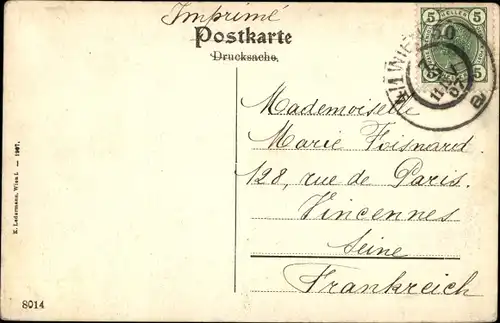 Imprimé
Postkarte
Drucksache.
5 HELLER 5
5 5
Mademoiselle
Marie Foisnard
128, rue de Paris.
Vincennes
Seine
Frankreich
K. Ledermann, Wien I. — 1907.
8014